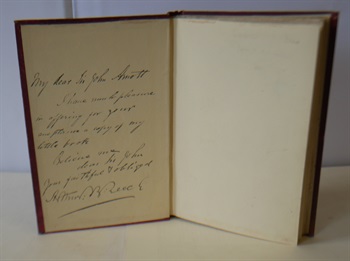 My dear Sir John Arnott
I have much pleasure
in offering for your
acceptance a copy of my
little book
Believe me
dear Sir John
Your faithful & obliged